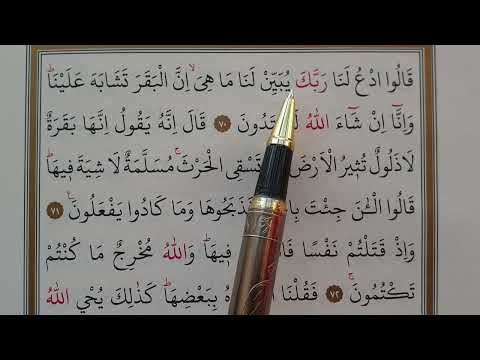 قَالُوا ادْعُ لَنَا رَبَّكَ يُبَيِّنْ لَنَا مَا هِىَۙ اِنَّ الْبَقَرَ تَشَابَهَ عَلَيْنَاۜ
وَاِنَّٓا اِنْ شَٓاءَ اللّٰهُ ٧٠ قَالَ اِنَّهُ يَقُولُ اِنَّهَا بَقَرَةٌ
لَا ذَلُولٌ تُثِيرُ الْاَرْضَ تَسْقِى الْحَرْثَۚ مُسَلَّمَةٌ لَا شِيَةَ فِيهَاۜ
قَالُوا الْـٰٔنَ جِئْتَ فَذَبَحُوهَا وَمَا كَادُوا يَفْعَلُونَ۟ ٧١
وَاِذْ قَتَلْتُمْ نَفْسًا فِيهَاۜ وَاللّٰهُ مُخْرِجٌ مَا كُنْتُمْ
تَكْتُمُونَۚ ٧٢ فَقُلْنَا بِبَعْضِهَاۜ كَذٰلِكَ يُحْيِي اللّٰهُ